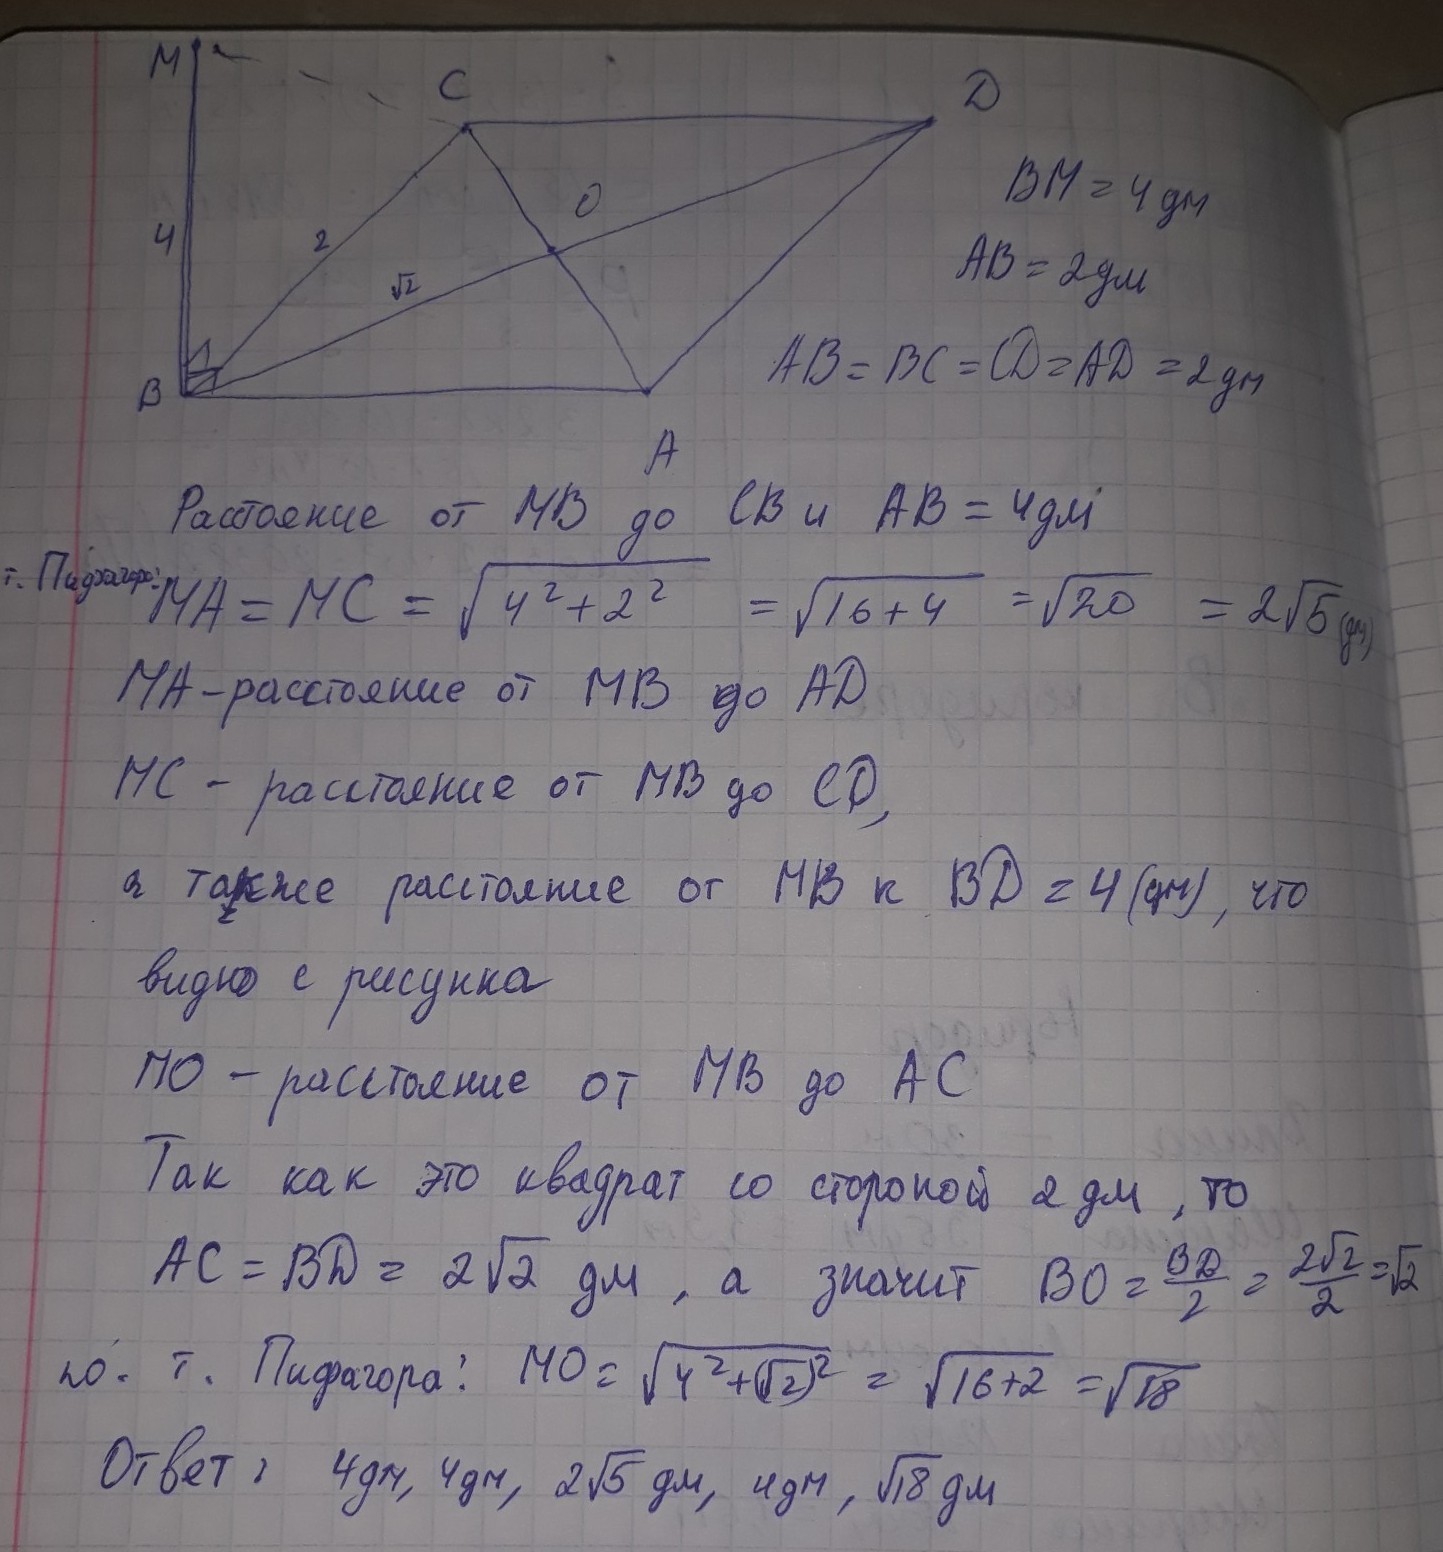 M
C
D
O
4
2
√2
B
A
BM = 4 дм
AB = 2 дм
AB = BC = CD = AD = 2 дм
Растояние от MB до CB и AB = 4 дм
т. Пифагора: MA = MC = √(4² + 2²) = √(16 + 4) = √20 = 2√5 (дм)
MA – расстояние от MB до AD
MC – расстояние от MB до CD,
а также расстояние от MB к BD = 4 (дм), что
видно с рисунка
MO – расстояние от MB до AC
Так как это квадрат со стороной 2 дм, то
AC = BD = 2√2 дм, а значит BO = BD/2 = 2√2/2 = √2
по. т. Пифагора: MO = √(4² + (√2)²) = √(16 + 2) = √18
Ответ: 4 дм, 4 дм, 2√5 дм, 4 дм, √18 дм